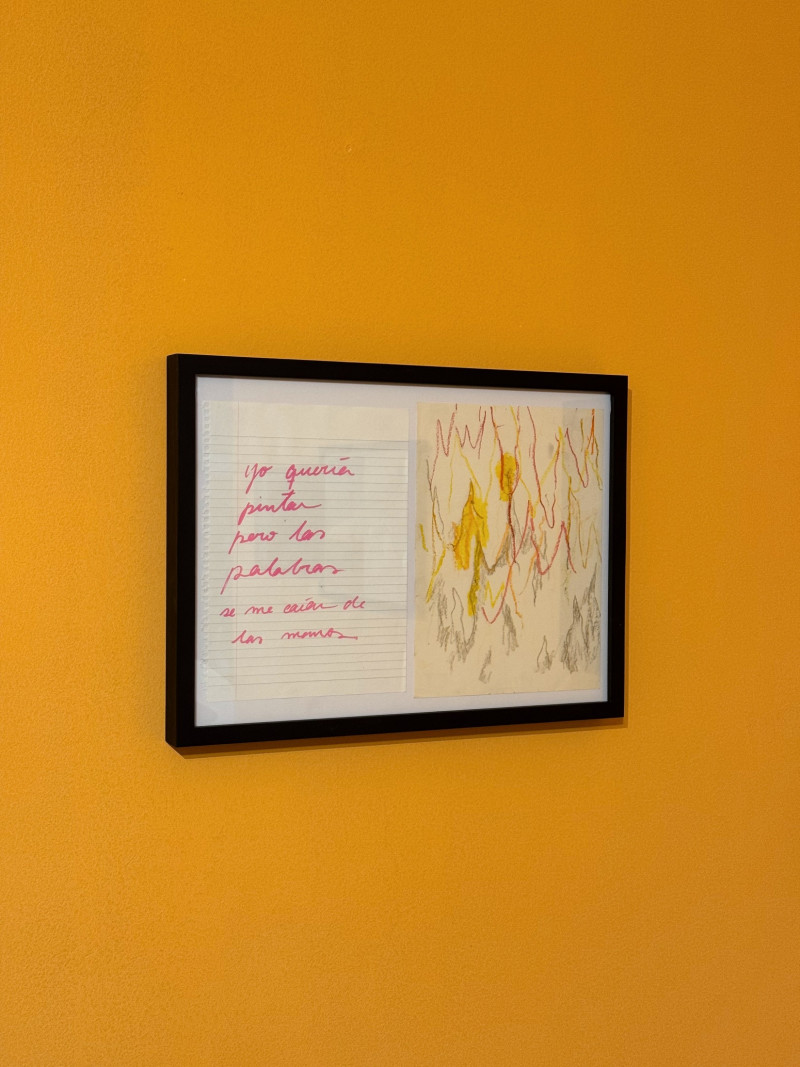 yo quería
pintar
pero las
palabras
se me caían de
las manos